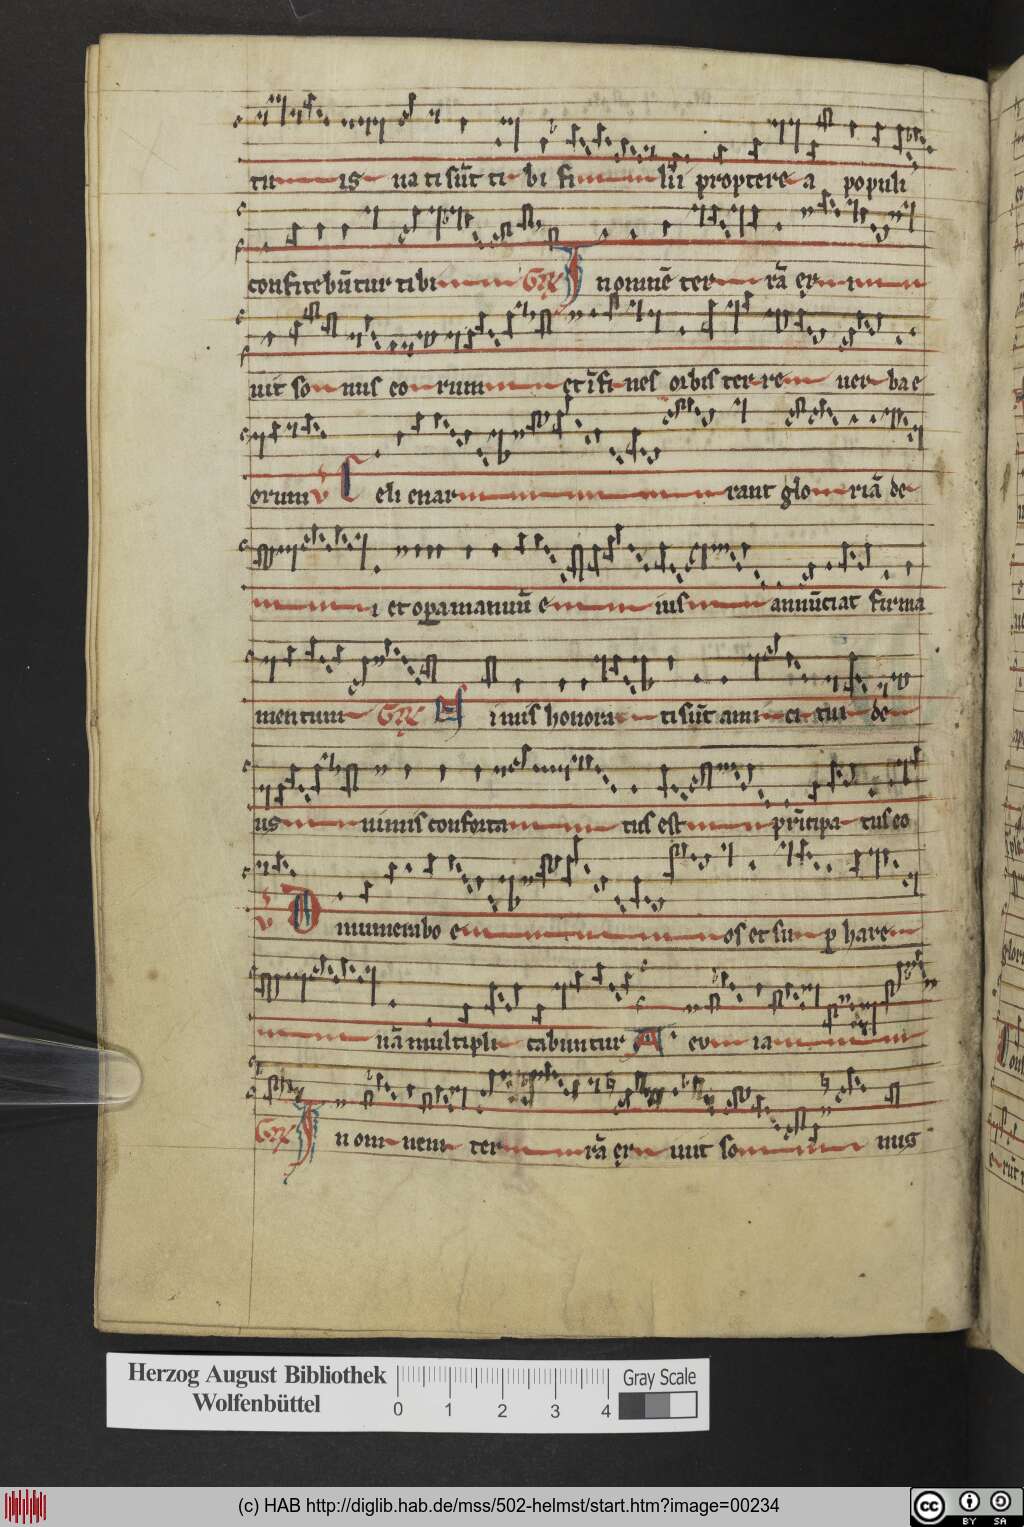 tu is na ti sūt ti bi fi lii propterea populi
confitebūtur tibi Gr̄ I nomnē ter rā er
uit so nus eo rum et ī fi nes orbis ter re uer ba e
orum v̄ C eli enar rant glo riā de
i et opa manuū e ius annūciat firma
mentum Gr̄ N imis honora ti sūt ami ci tui de
us nimis conforta tus est prīcipa tus eo
v̄ D inumerabo e os et su p hare
nā multipli cabuntur A eu ia
Gr̄ I n om nem ter rā er uit so nus
Herzog August Bibliothek
Wolfenbüttel
0 1 2 3 4
Gray Scale
(c) HAB http://diglib.hab.de/mss/502-helmst/start.htm?image=00234
cc BY SA